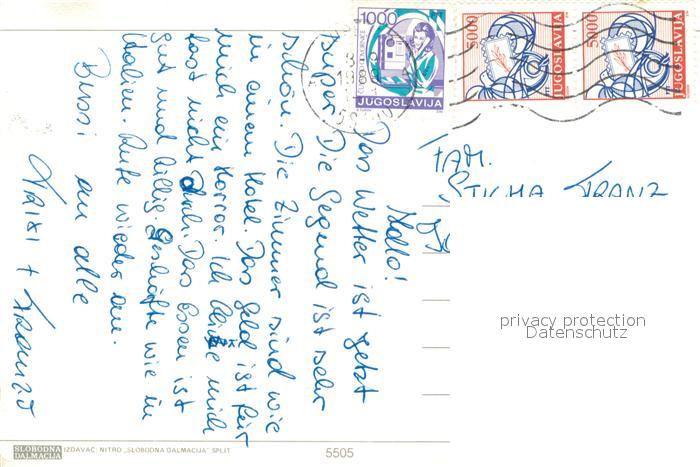 Hallo!
Das Wetter ist jetzt
super. Die Gegend ist sehr
schön. Die Zimmer sind wie
in einem Hotel. Das Geld ist für
mich ein Horror. Ich kenne mich
fast nicht durch. Das Essen ist
gut und billig. Geschäfte wie in
Italien. Rufe wieder an.
Bussi an alle
TRIXI + FRANZ
FAM.
STICHA FRANZ
1000
JUGOSLAVIJA
5000
JUGOSLAVIJA
5000
JUGOSLAVIJA
privacy protection
Datenschutz
SLOBODNA
DALMACIJA
IZDAVAČ: NITRO „SLOBODNA DALMACIJA" SPLIT
5505